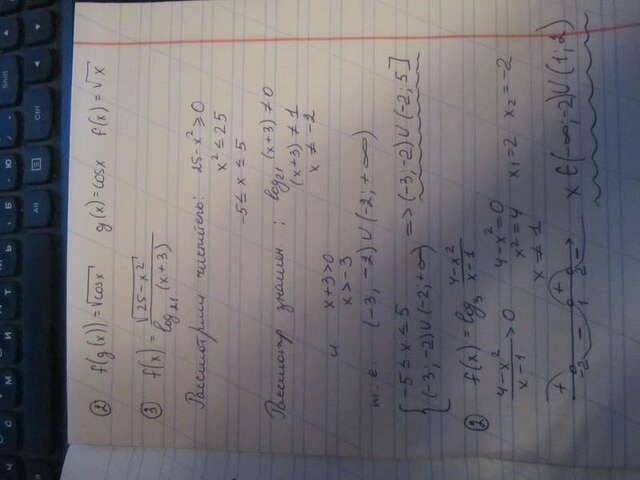 ② f(g(x)) = √cosx g(x) = cosx f(x) = √x
③ f(x) = √25-x² / log₂₁(x+3)
Рассмотрим числитель: 25-x² ≥ 0
x² ≤ 25
-5 ≤ x ≤ 5
Рассмотр знамен: log₂₁(x+3) ≠ 0
(x+3) ≠ 1
x ≠ -2
и x+3>0
x>-3
т.е. (-3; -2) ∪ (-2; +∞)
{ -5 ≤ x ≤ 5
(-3; -2) ∪ (-2; +∞) => (-3; -2) ∪ (-2; 5]
② f(x) = log₃ 4-x² / x-1
4-x² / x-1 > 0 4-x² = 0 x₁=2 x₂=-2
x² = 4
x ≠ 1
+ -2 - 1 + 2 - x ∈ (-∞; -2) ∪ (1; 2)